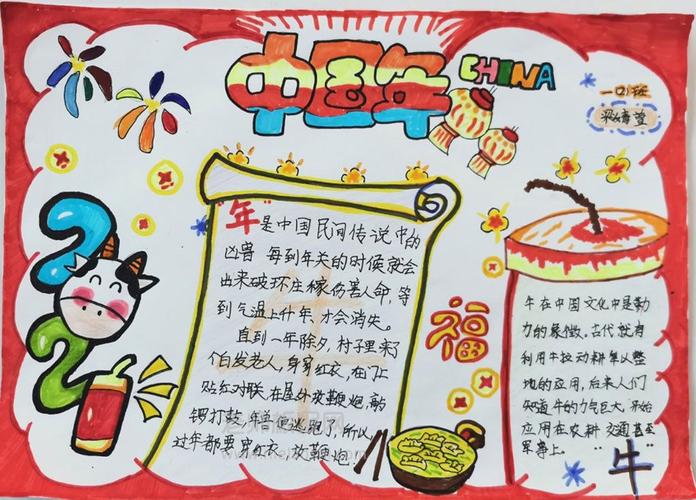 中国年
CHINA
"年"是中国民间传说中的
凶兽 每到年关的时候就会
出来破坏庄稼伤害人命，等
到气温上升 年 才会消失。
直到一年除夕，村子里来了
个白发老人，身穿红衣，在门上
贴红对联，在屋外放鞭炮，敲
锣打鼓 年兽便逃跑了，所以
过年都要穿红衣 放鞭炮
福
牛在中国文化中是勤
力的象徵。古代就有
利用牛拉动耕犁以整
地的应用，后来人们
知道牛的力气巨大 开始
应用在农耕 交通甚至
军事上。
"牛"